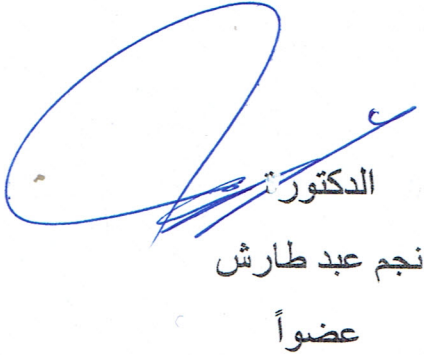 الدكتورة
نجم عبد طارش
عضواً